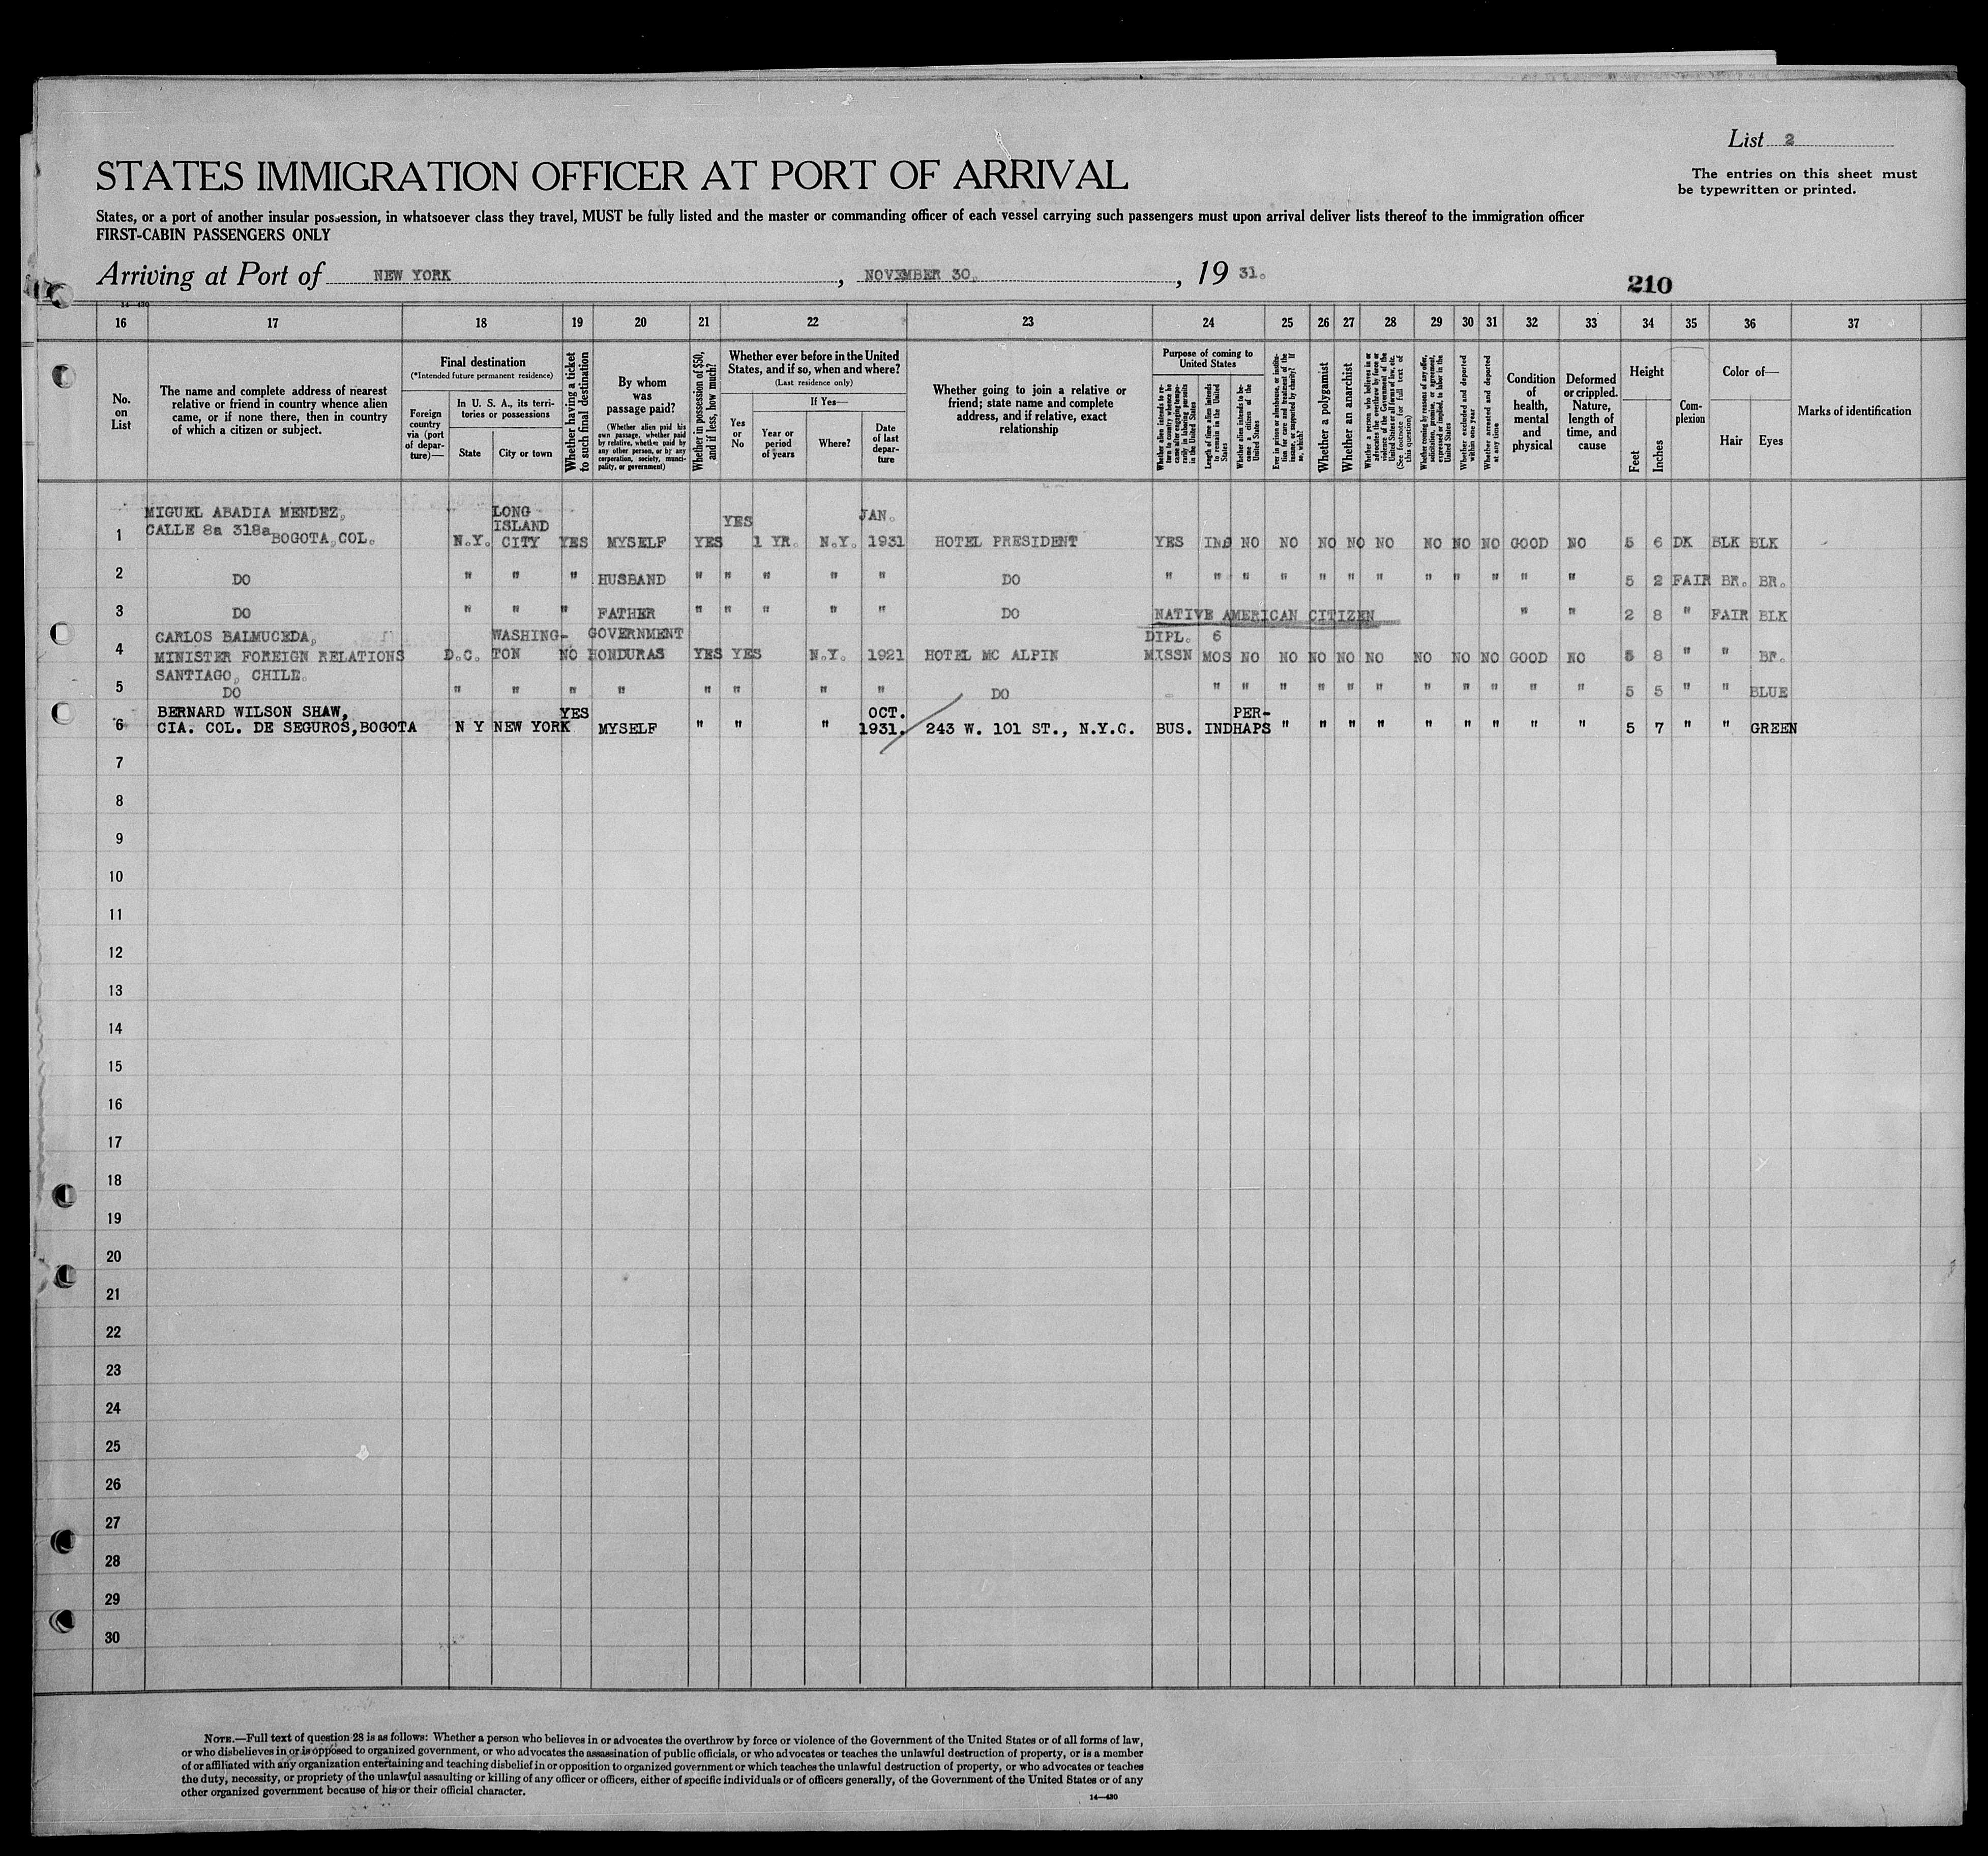 List 2
The entries on this sheet must
be typewritten or printed.
STATES IMMIGRATION OFFICER AT PORT OF ARRIVAL
States, or a port of another insular possession, in whatsoever class they travel, MUST be fully listed and the master or commanding officer of each vessel carrying such passengers must upon arrival deliver lists thereof to the immigration officer
FIRST-CABIN PASSENGERS ONLY
Arriving at Port of NEW YORK, NOVEMBER 30, 1931.
210
14—430
16 17 18 19 20 21 22 23 24 25 26 27 28 29 30 31 32 33 34 35 36 37
No. on List
The name and complete address of nearest relative or friend in country whence alien came, or if none there, then in country of which a citizen or subject.
Final destination
(*Intended future permanent residence)
Foreign country via (port of departure)—
In U. S. A., its territories or possessions
State
City or town
Whether having a ticket to such final destination
By whom was passage paid?
(Whether alien paid his own passage, whether paid by relative, whether paid by any other person, or by any corporation, society, municipality, or government)
Whether in possession of $50, and if less, how much?
Whether ever before in the United States, and if so, when and where?
(Last residence only)
Yes or No
If Yes—
Year or period of years
Where?
Date of last departure
Whether going to join a relative or friend; state name and complete address, and if relative, exact relationship
Purpose of coming to United States
Whether alien intends to return to country whence he came after engaging temporarily in laboring pursuits in the United States
Length of time alien intends to remain in the United States
Whether alien intends to become a citizen of the United States
Ever in prison or almshouse, or institution for care and treatment of the insane, or supported by charity? If so, which?
Whether a polygamist
Whether an anarchist
Whether a person who believes in or advocates the overthrow by force or violence of the Government of the United States or all forms of law, etc. (See footnote for full text of this question)
Whether coming by reasons of any offer, solicitation, promise, or agreement, expressed or implied, to labor in the United States
Whether excluded and deported within one year
Whether arrested and deported at any time
Condition of health, mental and physical
Deformed or crippled. Nature, length of time, and cause
Height
Feet
Inches
Complexion
Color of—
Hair
Eyes
Marks of identification
MIGUEL ABADIA MENDEZ, LONG JAN.
CALLE 8a 318a ISLAND YES
1 BOGOTA, COL. N.Y. CITY YES MYSELF YES 1 YR. N.Y. 1931 HOTEL PRESIDENT YES IND NO NO NO NO NO NO NO NO GOOD NO 5 6 DK BLK BLK
2 DO " " " HUSBAND " " " " " DO " " " " " " " " " " " " 5 2 FAIR BR. BR.
3 DO " " " FATHER " " " " " DO NATIVE AMERICAN CITIZEN " " 2 8 " FAIR BLK
CARLOS BALMUCEDA, WASHING- GOVERNMENT DIPL. 6
4 MINISTER FOREIGN RELATIONS D.C. TON NO HONDURAS YES YES N.Y. 1921 HOTEL MC ALPIN MISSN MOS NO NO NO NO NO NO NO NO GOOD NO 5 8 " " BR.
SANTIAGO, CHILE.
5 DO " " " " " " " " DO " " " " " " " " " " " 5 5 " " BLUE
BERNARD WILSON SHAW, YES OCT. PER-
6 CIA. COL. DE SEGUROS, BOGOTA N Y NEW YORK MYSELF " " " 1931. 243 W. 101 ST., N.Y.C. BUS. IND HAPS " " " " " " " " " 5 7 " " GREEN
7
8
9
10
11
12
13
14
15
16
17
18
19
20
21
22
23
24
25
26
27
28
29
30
NOTE.—Full text of question 28 is as follows: Whether a person who believes in or advocates the overthrow by force or violence of the Government of the United States or of all forms of law,
or who disbelieves in or is opposed to organized government, or who advocates the assassination of public officials, or who advocates or teaches the unlawful destruction of property, or is a member
of or affiliated with any organization entertaining and teaching disbelief in or opposition to organized government or which teaches the unlawful destruction of property, or who advocates or teaches
the duty, necessity, or propriety of the unlawful assaulting or killing of any officer or officers, either of specific individuals or of officers generally, of the Government of the United States or of any
other organized government because of his or their official character.
14—430